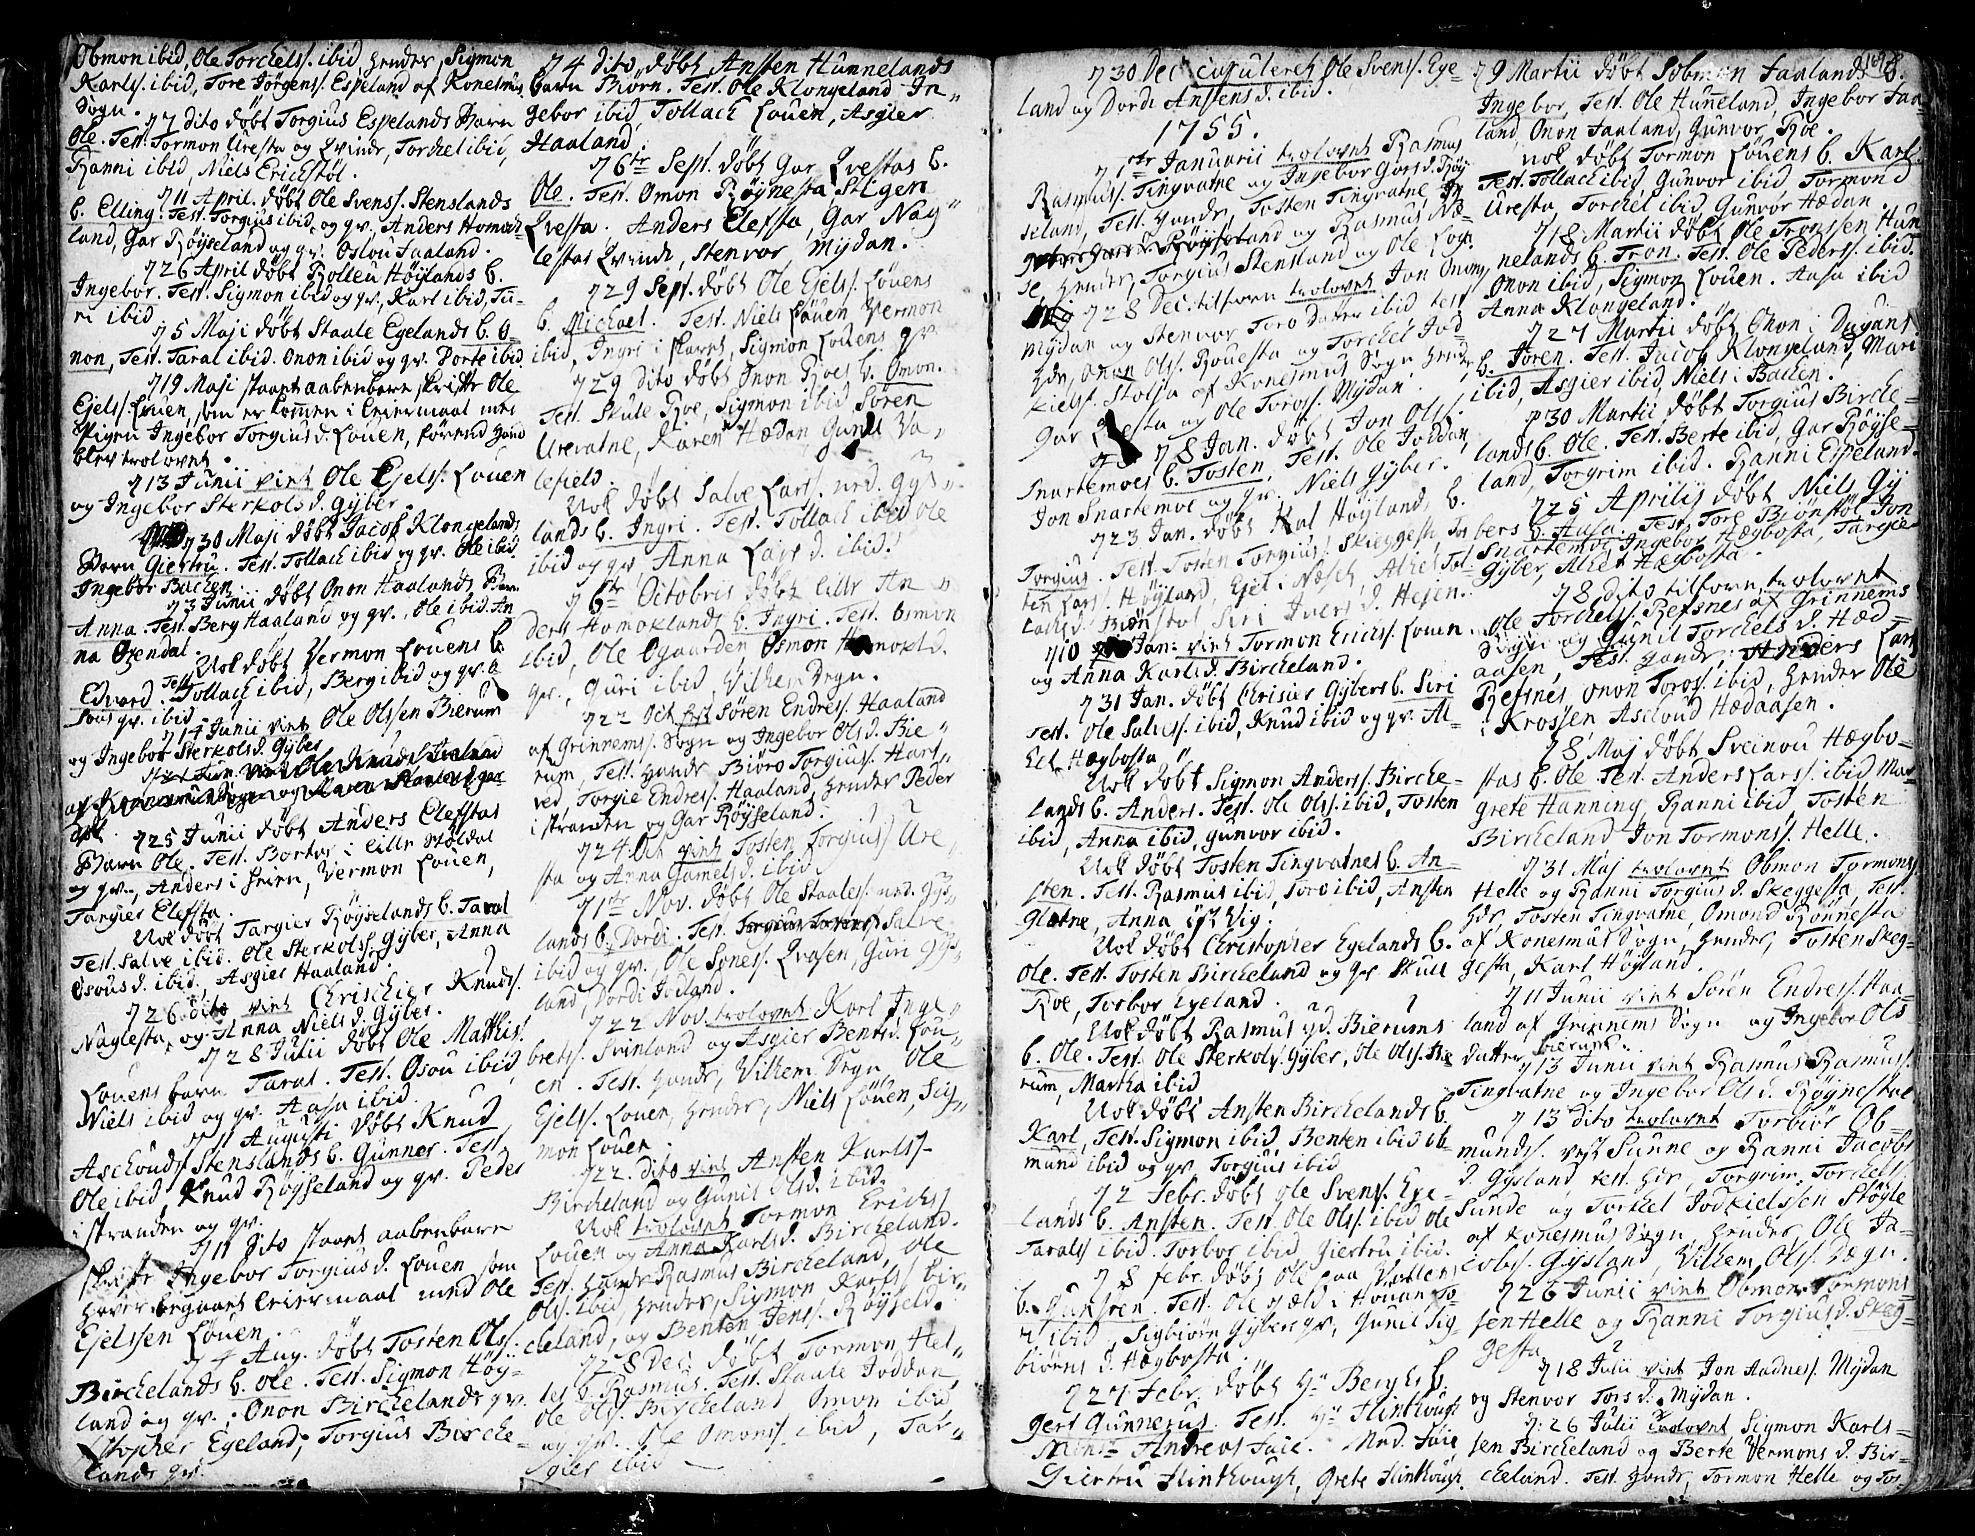 Obmon ibid, Ole Torckels. ibid, hendes, Sigmon
Karls. ibid, Tore Jörgens. Espeland af Konesmus
Sogn.
77 dito döbt Torgius Espelands Barn
Ole. Test. Tormon Uresta og Qvinde, Torckel ibid,
Ranni ibid, Niels Erickstöl.
711 April. döbt Ole Svens. Stenslands
b. Elling. Test. Torgius ibid, og qv., Anders Homock
land, Gar Röyseland og qv. Oslou Faaland.
726 April döbt Rolleu Höylands b.
Ingebor. Test. Sigmon ibid og qv., Karl ibid,
ri ibid
75 Maji döbt Staale Egelands b. O-
non, Test. Taral ibid. Onon ibid og qv. Berte ibid.
719 Maji staaet aabenbare skrifte Ole
Ejels. Löuen, som er kommen i Leiermaal med
Pigen Ingebor Torgius d. Löuen, förend hand
blev trolovet.
713 Junii viet Ole Ejels. Löuen
og Ingebor Sterkols d. Gyber.
730 Maji döbt Jacob Klongelands
Barn Giertru. Test. Tollack ibid og qv. Ole ibid
Ingebor Backen.
73 Junii döbt Onon Haalands Barn
Anna. Test. Berg Haaland og qv., Ole ibid. An
na Öxendal.
Nok döbt Vermon Löuens b.
Edvard. Test. Tollack ibid, Berg ibid og qv.
qv. ibid
714 Junii viet Ole Olssen Bierum
og Ingebor Sterkols d. Gyber
725 Junii döbt Anders Elefstas
Barn Ole. Test. Lille Stöldal
og qv., Anders i Heien, Vermon Löuen,
Targier Elefsta.
Nok döbt Targier Röyselands b. Taral
Test. Salve ibid. Ole Sterkols. Gyber, Anna
Osous d. ibid. Asgier Haaland.
726 dito viet Christier Knuds.
Naglesta, og Anna Niels d. Gyber.
728 Julii döbt Ole Mathis.
Löuens barn Taral. Test. Osou ibid,
Niels ibid og qv. Aasu ibid.
71 Augusti döbt Knud
Asckouds. Stenslands b. Gunner. Test.
Ole ibid Knud Röyseland og qv. Peder
i stranden og qv.
711 dito staaet aabenbare
skrifte Ingebor Torgius d. Löuen, som
haver begaaet Leiermaal med Ole
Ejelssen Löuen.
74 Aug. döbt Tosten Ols.
Birckelands b. Ole. Test. Sigmon Höy-
land og qv., Onon Birckeland og qv.
stopher Egeland, Torgius Bircke-
lands qv.
74 dito döbt Ansten Hunnelands
barn Biörn. Test. Ole Klongeland In-
gebor ibid, Tollack Löuen, Asgier
Haaland
76te Sept. döbt Gar Qvestas b.
Ole. Test. Omon Röynesta Stigen
Qvesta. Anders Elefsta, Gar Nag-
lestas Qvinde, Stenvor Mydan.
729 Sept. döbt Ole Ejels. Löuens
b. Michael. Test. Niels Löuen Vermon
ibid, Ingri i skaret, Sigmon Löuens qv
729 dito döbt Onon Roes b. Omon.
Test. Skule Roe, Sigmon ibid Sören
Urevatne, Karen Hædan Guner Va-
lefield.
Nok döbt Salve Lars. ned. Gys-
lands b. Ingri. Test. Tollack ibid Ole
ibid og qv Anna Lars d. ibid.
76te Octobris döbt Lille An-
ders Homoklands b. Ingri. Test. Osmon
ibid, Ole Ögaarden, Osmon Homokld.
qv., Guri ibid, Vilhem Degn.
722 Oct Sören Endres. Haaland
af Grinnems Sogn og Ingebor Ols d. Bie-
rum, Test. Hands Biöro Torgius. Hars-
ved, Torgie Endres. Haaland, hendes Peder
i stranden og Gar Röyseland.
724 Oct viet Tosten Torgius. Ure
sta og Anna Gamels d. ibid.
71te Nov. döbt Ole Staales. ned. Gys-
lands b. Dordi. Test. Salve
ibid og qv. Ole Sones. Qvasen, Guri Gys-
land, Dordi Jodland.
722 Nov. trolovet Karl Inge-
brets. Svinland og Asgier Bents d. Löu-
en. Test. hands, Vilhem Degn Ole
Ejels. Löuen, hendes, Niels Löuen, Sig-
mon Löuen.
722 dito viet Ansten Karls.
Birckeland og Gunil Ols d. ibid.
Nok trolovet Tormon Ericks.
Löuen og Anna Karls d. Birckeland.
Test. hands Rasmus Birckeland, Ole
Ols. ibid, hendes, Sigmon Karls. Bir-
ckeland, og Benten Jens. Röyseld.
728 Dec. döbt Tormon Hel-
les b. Rasmus. Test. Staale Joddan,
Ole Ols. Birckeland Omon ibid
og qv. Ole Omons. ibid, Tar-
gier ibid
730 Dec. copuleret Ole Svens. Ege-
land og Dordi Anstens d. ibid.
1755.
71te Januarii trolovet Rasmus
Rasmus. Tingvatne og Ingebor Gars d. Röy
seland, Test. hands, Tosten Tingvatne,
land og Rasmus
hendes, Torgius Stensland og Ole
728 Dec. tilforn trolovet Jon
Mydan og Stenvor Toro Datter ibid test
hds, Onon Ols. Rouesta og Torckel Jod
kiels. Stolsa af Konesmus Sogn hendes
Gar Qvesta og Ole Toros. Mydan.
78 Jan. döbt Jon Ols.
Snartemoes b. Tosten, Test. Ole Joddan,
Jon Snartemoe og qv. Niels Gyber.
723 Jan. döbt Kal Höyland, b.
Torgius. Test. Tosten Torgius. Skieggesta
ten Lars. Höyland, Ejel. Næsel,
lachs d. Biönstöl Siri Ivers d. Hejen.
710 Jan. viet Tormon Ericks. Löuen.
og Anna Karls d. Birckeland.
731 Jan. döbt Chrisier Gybers b. Siri
Test. Ole Salves. ibid, Knud ibid og qv. Al-
let Hægbosta
Nok döbt Sigmon Anders. Bircke-
lands b. Anders. Test. Ole Ols. ibid, Tosten
ibid, Anna ibid, Gunvor ibid.
Nok döbt Tosten Tingvatnes b. An-
sten. Test. Rasmus ibid, Toro ibid, Ansten
Gletne, Anna Vig.
Nok döbt Christopher Egelands b.
Ole. Test. Tosten Birckeland og qv. Skule
Roe, Torbor Egeland.
Nok döbt Rasmus Bierums
b. Ole. Test. Ole Sterkols. Gyber, Ole Ols. Bie
rum, Martha ibid
Nok döbt Ansten Birckelands b.
Karl, Test. Sigmon ibid, Benten ibid Ob-
mund ibid og qv. Torgius ibid
72 Febr. döbt Ole Svens. Ege-
lands b. Ansten. Test. Ole Ols. ibid Ole
Tarals. ibid. Torbor ibid, Giertru ibid.
78 Febr. döbt Ole paa
b. Test. Ole i
ri ibid, Sigbiörn Gybers qv, Gunil Sig-
biörns d. Hægbosta
727 Febr. döbt Hr Berghs b.
Gert Gunnerus. Test. Hr Flinthough
Andreas Faie. Mad. Faie
Giertru Flinthough, Grete Flinthough.
79 Martii döbt Sobmon Faalands b.
Ingebor, Test. Ole Hunneland, Ingebor Faa
land, Onon Faaland, Gunvor Roe.
Nok döbt Tormon Löuens b. Karl.
Test. Tollack ibid, Gunvor ibid, Tormon
Uresta, Torckel ibid, Gunvor Hædan.
718 Martii döbt Ole Tronssen Hun
nelands b. Tron. Test. Ole Peders. ibid.
Onon ibid, Sigmon Löuen. Aasa ibid
Anna Klongeland.
727 Martii döbt Onon i
b. Tören. Test. Jacob Klongeland, Mari
ibid, Asgier ibid, Niels i Backen.
730 Martii döbt Torgius Bircke-
lands b. Ole. Test. Berte ibid, Gar Röyse-
land, Torgrim ibid. Ranni Espeland.
725 Aprilis döbt Niels Gy
bers b. Aasa. Test. Tore Biönstöl Jon
Snartemoe, Ingebor Hægbosta, Targie
Gyber, Allet Hægbosta.
78 dito tilforn trolovet
Ole Torckels. Refsnes af Grinnems
Sogn og Gunil Torckels d. Hæd-
aasen, Test. hands, Anders Lars
Refsnes, Onon Toros. ibid, hendes Ole
i Krossen Asckoud Hædaasen.
78 Maj döbt Sveinou Hægbo-
stas b. Ole. Test. Anders Lars. ibid Mar-
grete Hanning, Ranni ibid, Tosten
Birckeland Jon Tormons. Helle.
731 Maj trolovet Obmon Tormons.
Helle og Ranni Torgius d. Skeggesta, Test.
hds, Tosten Tingvatne, Omond Rönnesta
af Konesmus Sogn, hendes, Tosten Skeg-
gesta, Karl Höyland.
711 Junii viet Sören Endres. Haa-
land af Grinnems Sogn og Ingebor Ols
datter Bierum.
713 Junii viet Rasmus Rasmus.
Tingvatne og Ingebor Ols d. Röynestöl
713 dito trolovet Torbiör Ob-
munds. Sunne og Ranni Jacobs
d. Gysland test. hds, Torgrim Torckels.
Sunde og Torkel Jodkielssen Stöyle
af Konesmus Sogn, hendes Ole Ja-
cobs. Gysland, Vilhem Ols. Degn.
726 Junii viet Obmon Tormons-
sen Helle og Ranni Torgius d. Skeg-
gesta
718 Julii viet Jon Aadnes. Mydan
og Stenvor Tors d. Mydan.
726 Julii trolovet Sigmon Karls-
sen Birckeland og Berte Vermons d. Bir-
ckeland. Test. hands, Tormon Helle og Tos-